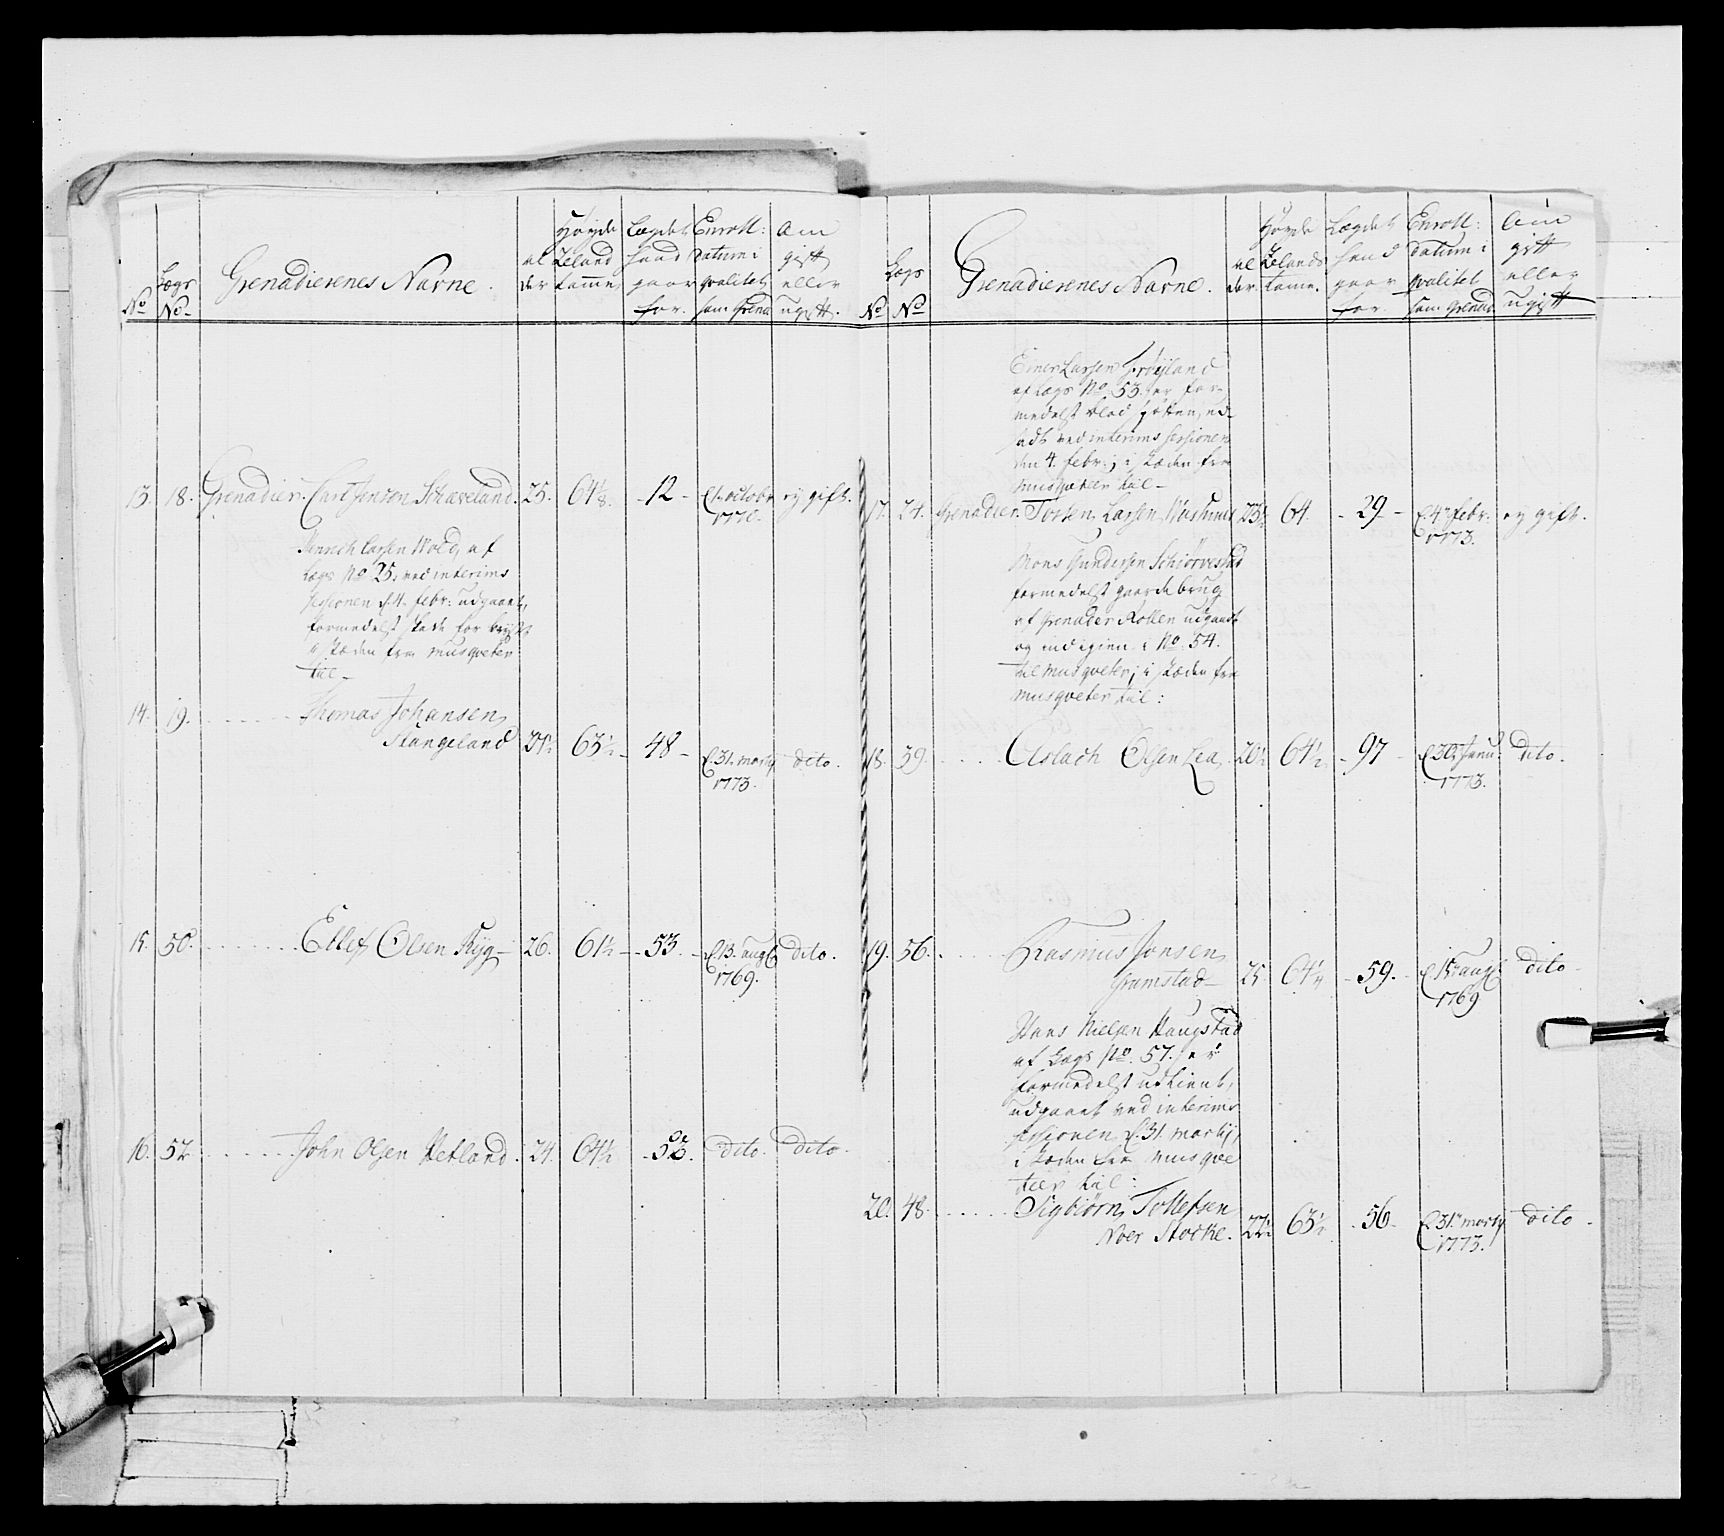 No
Lægs No
Grenadierenes Navne.
al der
Høyde Zeland tomme
Lægdet hand gaar for.
Enroll: datum i qvalitet som Grenad
Om gift eller ugift.
13. 18. Grenadier. Carl Jensen Schæveland. 25. 64 1/8. - 12 - d. 1. octobr 1770. ey gift.
Henrich Larsen Wold, af
Lægs No 25. ved interims
sessionen d. 4. febr: udgaaet,
formedelst skade for bryst
i stæden fra musqveter
til -
14. 19. Thomas Johansen
Stangeland 63 1/2 - 48 - d. 31. marty 1773. dito.
15. 50. Ellef Olsen Ryg - 26. 61 1/2 - 53. - d. 13. aug 1769. dito.
16. 52 John Olsen Hetland. 24. 64 1/2 dito. dito.
No
Lægs No
Grenadierenes Navne.
al der.
Høyde Zelands tome.
Lægdet hand gaar for.
Enroll: datum i qvalitet som Grenad
Om gift eller ugift
Einer Larsen Frøyland
af Lægs No. 53. er for-
medelst blod spotten, ud
sadt ved interims sessionen
den 4. febr:, i stæden fra
musqveteer til -
17. 24. Grenadier. Torsten Larsen 64. - 29 - d. 4de febr: 1773. ey gift.
Mons Gundersen
formedelst gaarde brug
af Grenader Rollen udgaaet
og ind igien i No. 54.
til musqveter; i stæden fra
musqveter til:
18. 39. Aslach Olsen Lea. 20 1/2 64 1/2 - 97 - d. 30. Janu. 1773. dito.
19. 56. Rasmus Jonsen
Gramstad - 25. 64 1/4 - 59. - d. 15. aug 1769 dito -
Hans Nielsen Haugstad
af Lægs No. 57. er
formedelst udtient,
udgaaet ved interims
sessionen d. 31. marty,
i stæden fra musqve
teer til:
20. 48. Sigbiørn Tollefsen
Noer Stocke. 22 1/2 63 1/2 - 56 - d. 31. marty 1773. dito -